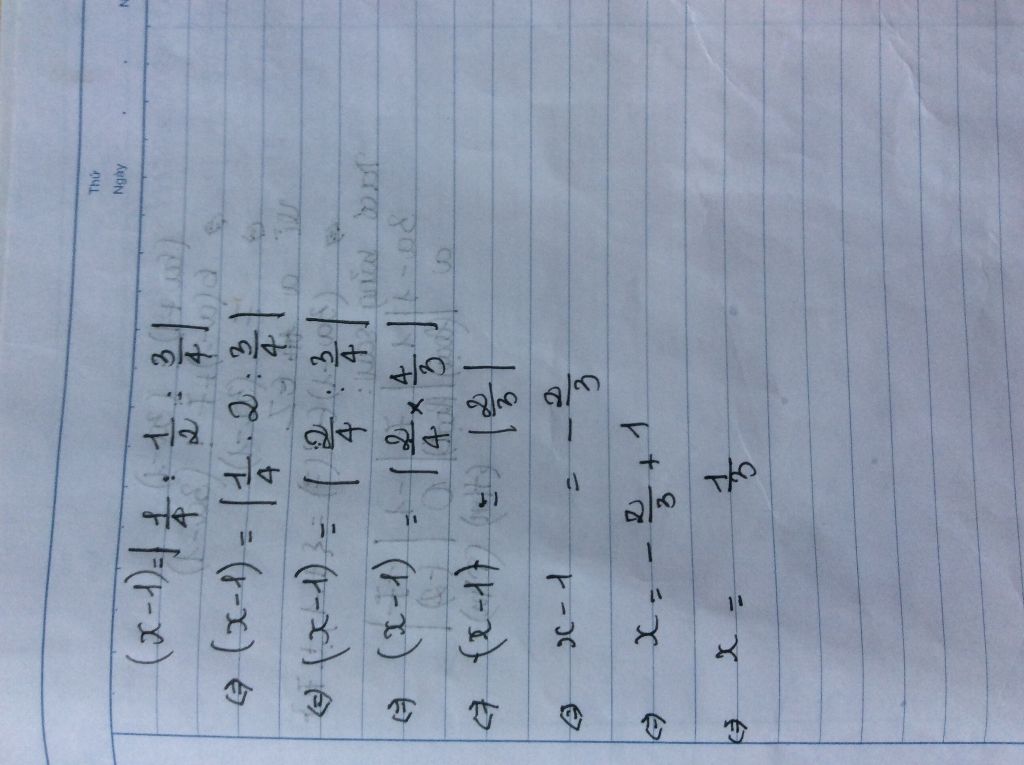 Thứ
Ngày
(x-1) = |1/4 : 1/2 : 3/4|
⇔ (x-1) = |1/4 . 2 : 3/4|
⇔ (x-1) = |2/4 : 3/4|
⇔ (x-1) = |2/4 × 4/3|
⇔ (x-1) = |2/3|
⇔ x-1 = -2/3
⇔ x = -2/3 + 1
⇔ x = 1/3